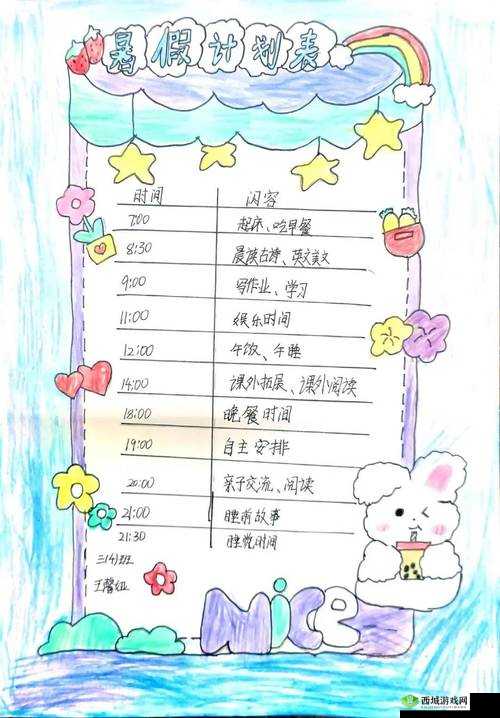 暑假计划表
时间 内容
7:00 起床、吃早餐
8:30 晨读古诗、英文美文
9:00 写作业、学习
11:00 娱乐时间
12:00 午饭、午睡
14:00 课外拓展、课外阅读
18:00 晚餐时间
19:00 自主安排
20:00 亲子交流、阅读
21:00 睡前故事
21:30 睡觉时间
三(4)班
王馨
NiCE
西城游戏网